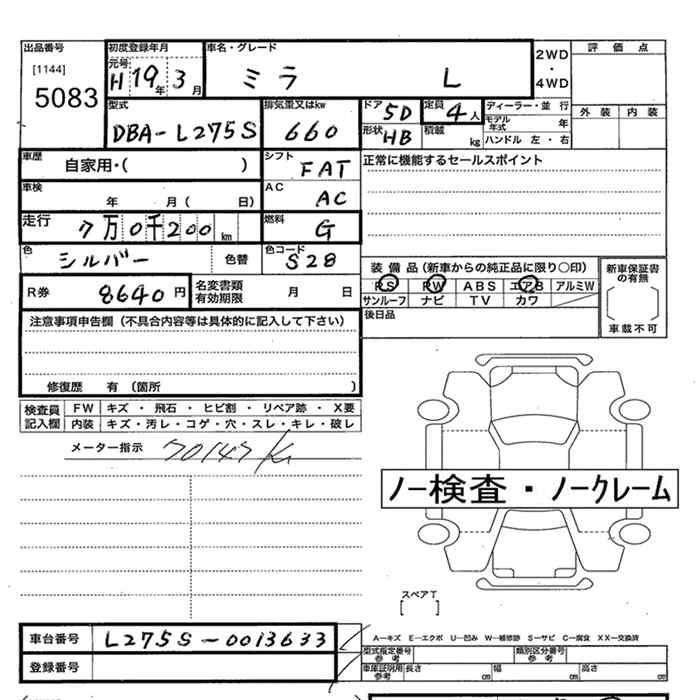 出品番号
[1144]
5083
初度登録年月
元号
H 19年 3月
車名・グレード
ミラ L
2WD
・
4WD
評価点
外装 内装
型式
DBA-L275S
排気量又はkw
660
ドア 5D
形状 HB
定員 4人
積載 kg
ディーラー・並行
モデル年式 年
ハンドル 左・右
車歴
自家用・( )
シフト
FAT
正常に機能するセールスポイント
車検
年 月( 日)
AC
AC
走行
7万0千200km
燃料
G
色
シルバー
色替
色コード
S28
装備品(新車からの純正品に限り〇印)
PS PW ABS エアB アルミW
サンルーフ ナビ TV カワ
新車保証書の有無
[ ]
車載不可
R券
8640円
名変書類有効期限 月 日
後日品
注意事項申告欄(不具合内容等は具体的に記入して下さい)
修復歴 有(箇所 )
検査員記入欄
FW キズ・飛石・ヒビ割・リペア跡・X要
内装 キズ・汚レ・コゲ・穴・スレ・キレ・破レ
メーター指示 70147K
ノー検査・ノークレーム
スペアT
[ ]
車台番号
L275S-0013633
登録番号
A―キズ E―エクボ U―凹み W―補修跡 S―サビ C―腐食 XX―交換済
型式指定番号参考
類別区分番号参考
車庫証明用参考 長さ cm 幅 cm 高さ cm